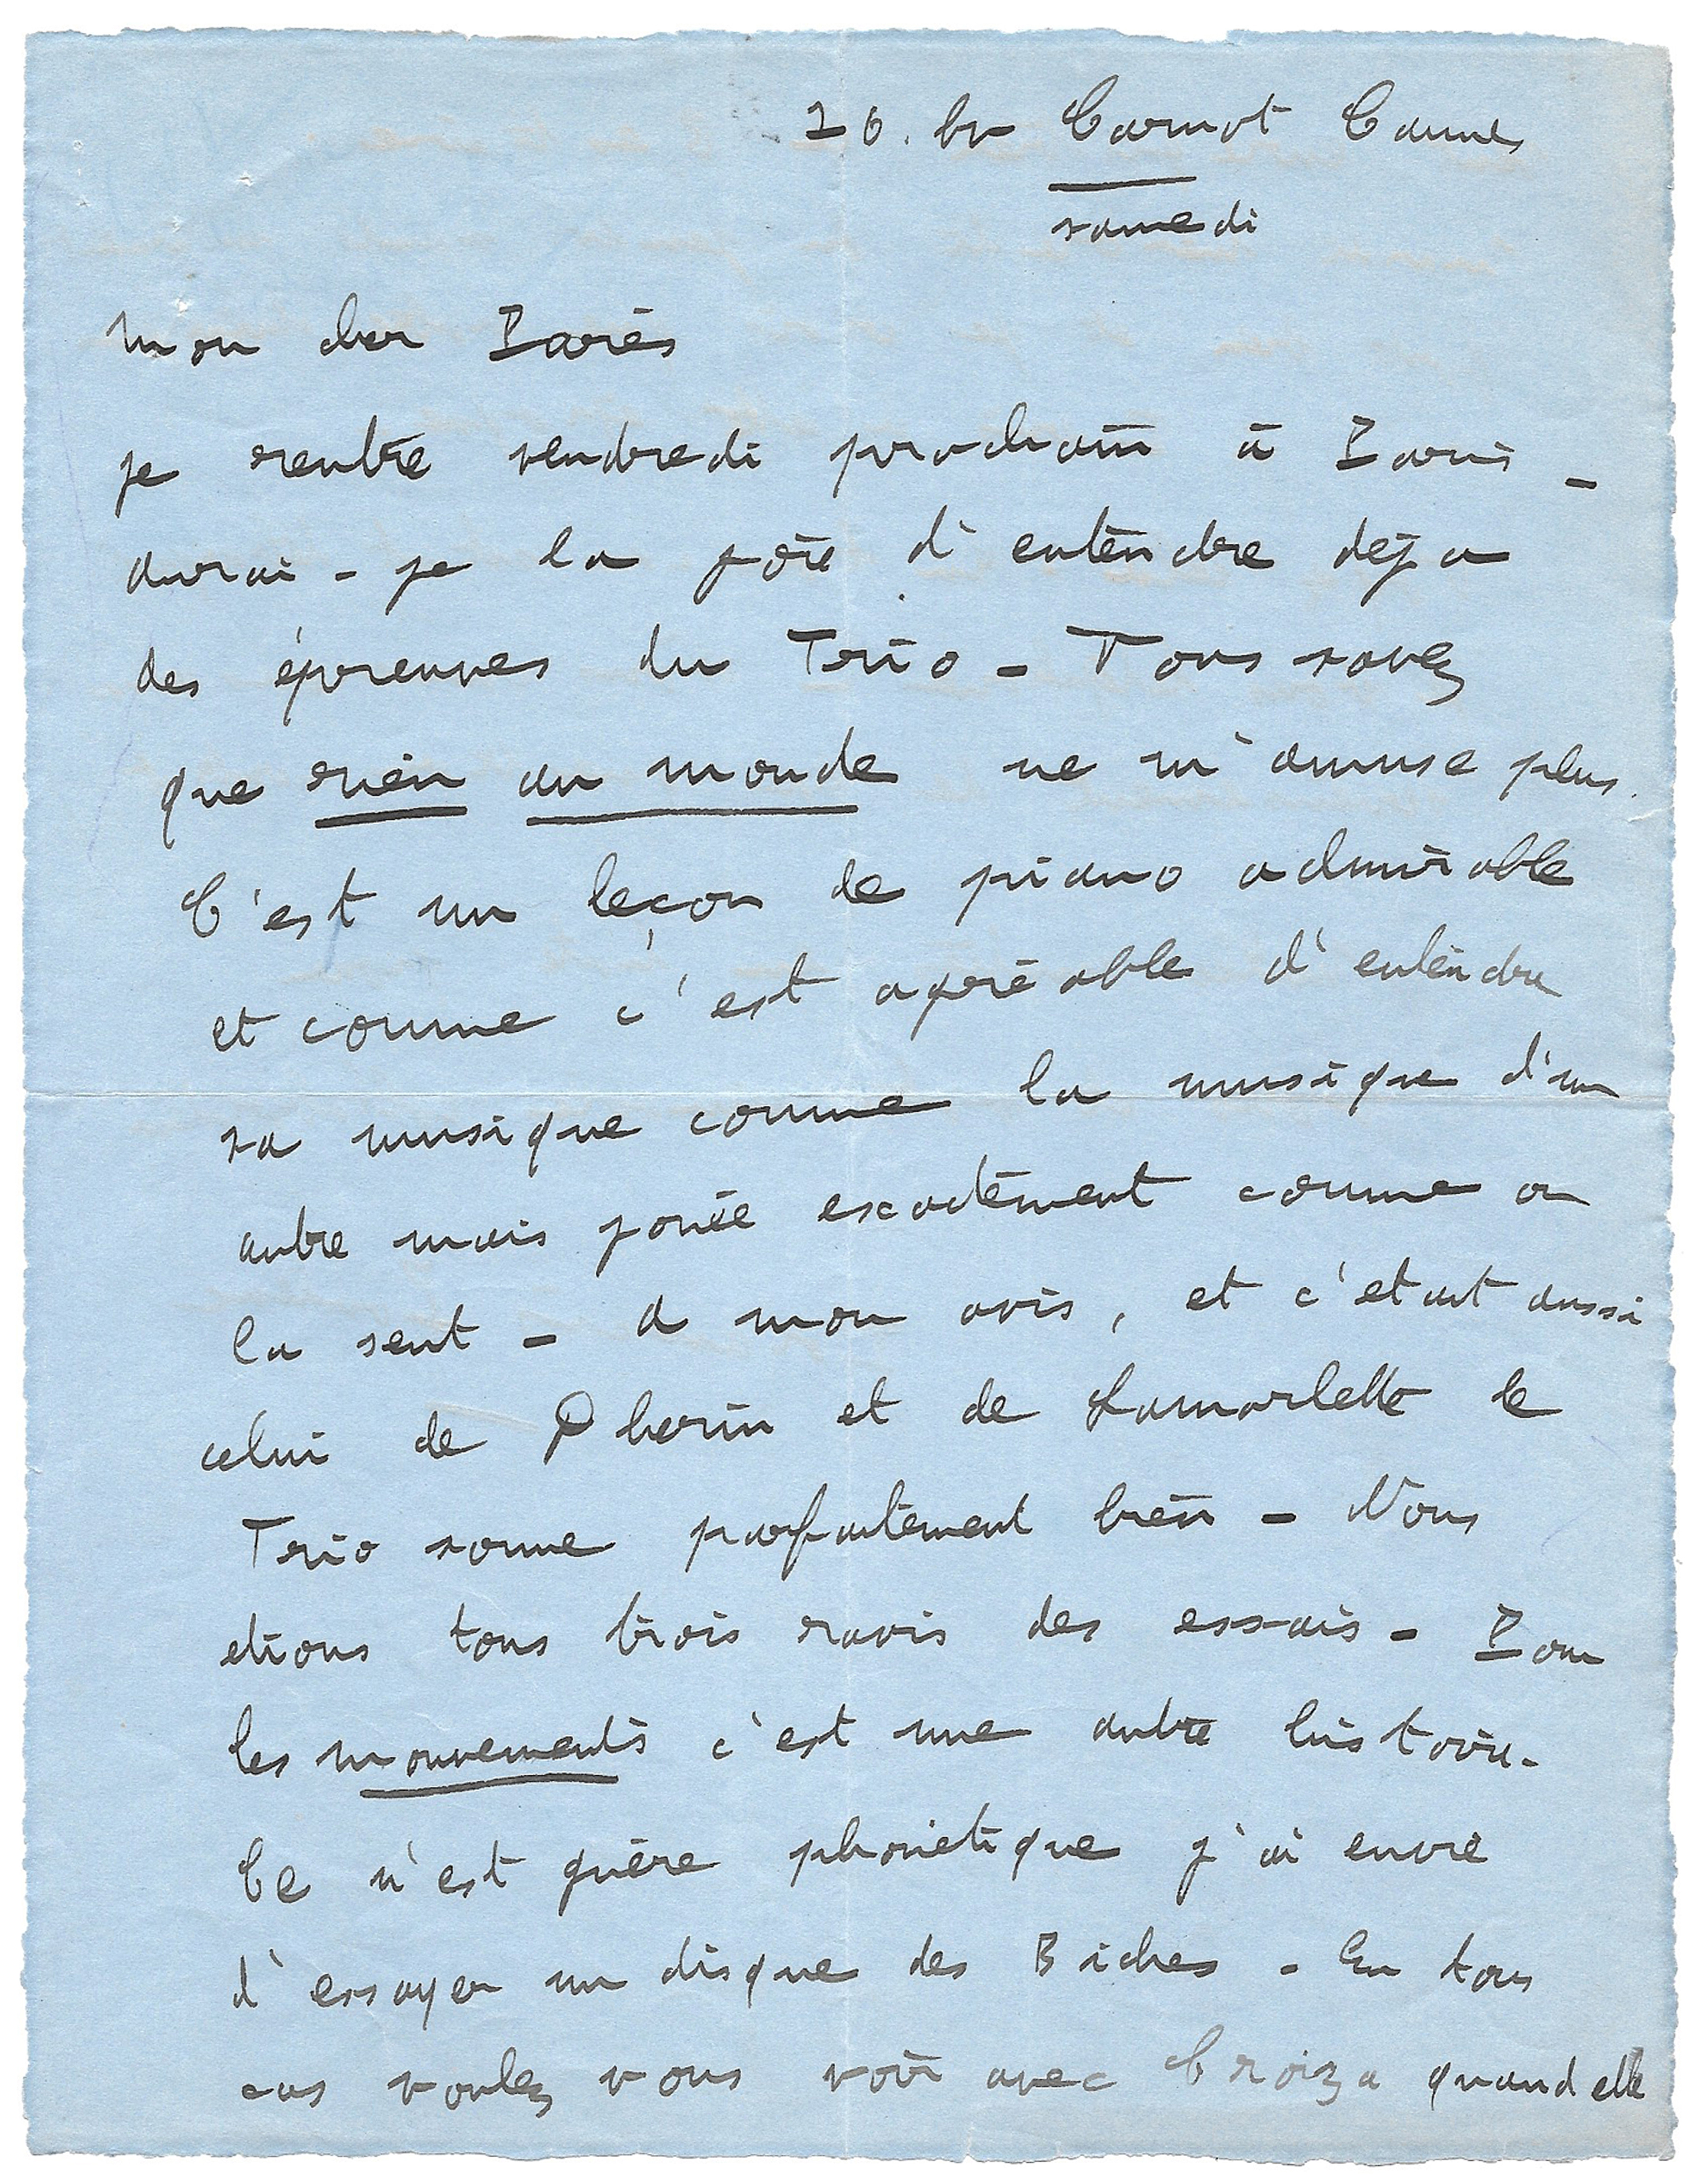 26. bv Carnot Cannes
samedi
Mon cher Parès
je rentre vendredi prochain à Paris _
aurai - je la joie d'entendre déja
des épreuves du Trio - Vous savez
que rien au monde ne m'amuse plus.
C'est un leçon de piano admirable
et comme c'est agréable d'entendre
sa musique comme la musique d'un
autre mais jouée exactement comme on
la sent - A mon avis, et c'etait aussi
celui de Pherin et de Lamorlette le
Trio sonne parfaitement bien - Nous
etions tous trois ravis des essais - Pour
les mouvements c'est une autre histoire -
Ce n'est guère phonetique j'ai envie
d'essayer un disque des Biches - En tous
cas voulez vous voir avec Croiza quand elle